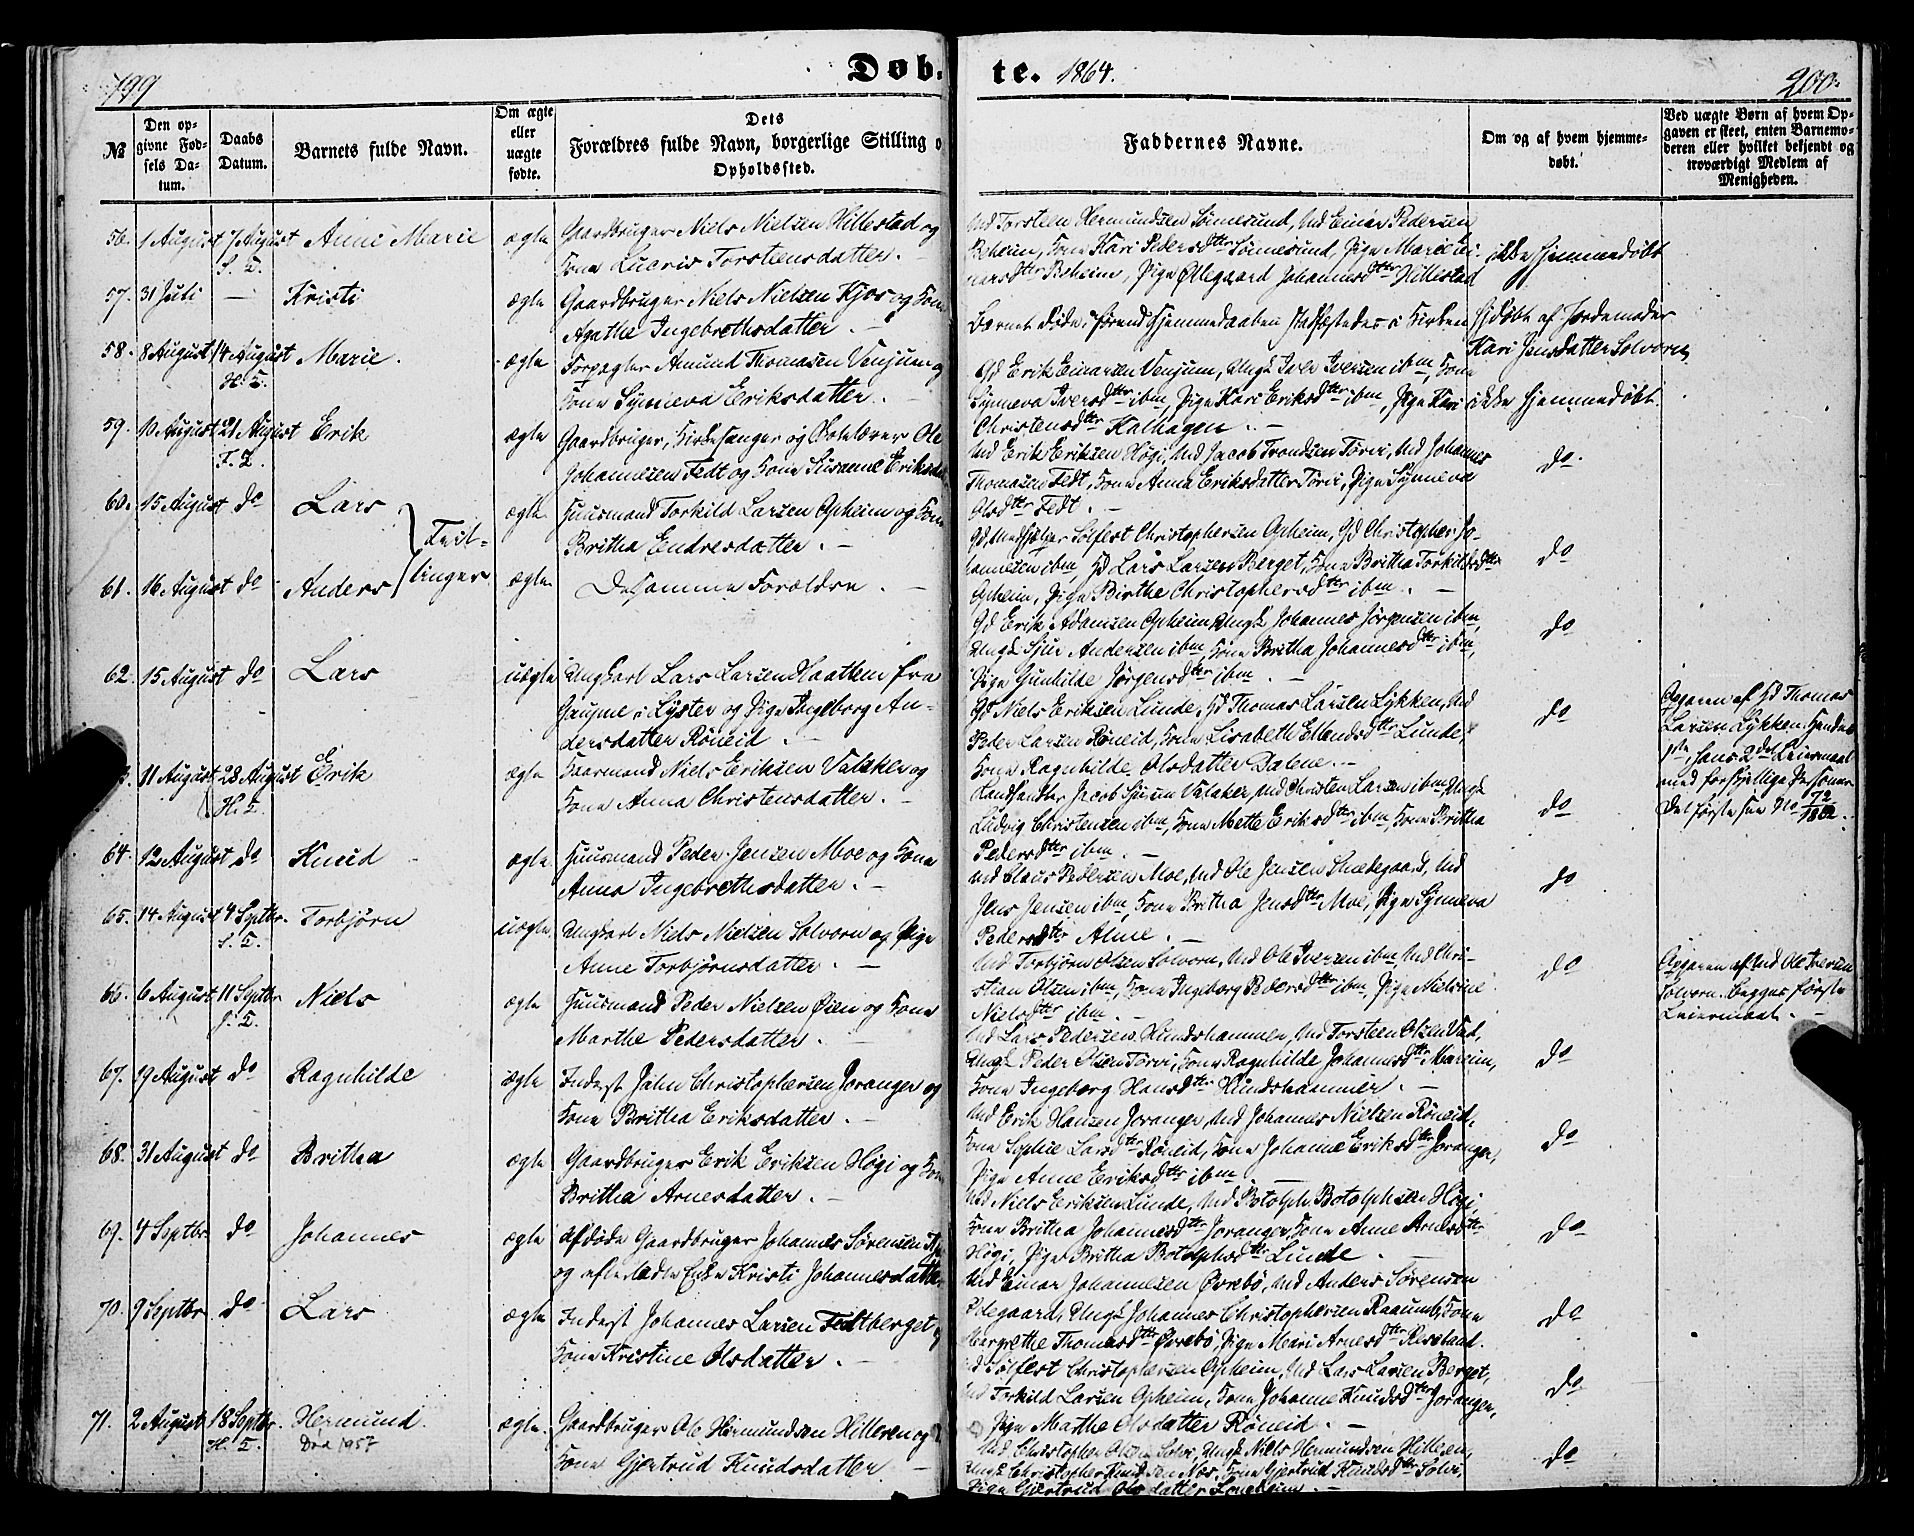 199
Døb-
te. 1864.
200.
№
Den opgivne Fødsels Datum.
Daabs Datum.
Barnets fulde Navn.
Om ægte eller uægte fødte.
Dets Forældres fulde Navn, borgerlige Stilling o
Opholdssted.
Faddernes Navne.
Om og af hvem hjemmedøbt.
Ved uægte Børn af hvem Opgaven er skeet, enten Barnemoderen eller hvilket bekjendt og troværdigt Medlem af Menigheden.
56. 1 August 7 August Anne Marie ægte Gaardbruger Niels Nielsen Hillestad og
S. T. Kone Lucris Torsteensdatter.
Ud Torsteen Hermundsen Sønnesund, Ud Einar Pedersen
Beheim, Kone Kari Pedersdtter Sønnesund, Pige Marie Ei-
narsdtter Beheim, Pige Øllegaard Johannesdtter Hillestad
ikke hjemmedøbt
57. 31 Juli — Kristi ægte Gaardbruger Niels Nielsen Kjos og Kone
Agathe Ingebrethsdatter.
Barnet døde, førend Hjemmedaaben stadfæstedes i Kirken
Hjdøbt af Jordemoder
Kari Jensdatter Solvorn
58. 8 August 14 August Marie. ægte Forpagter Amund Thomasen Venjum og
H. T. Kone Synneva Eriksdatter.
Gd Erik Einarsen Venjum, Ungk Iver Iversen ibm, Kone
Synneva Iversdtter ibm, Pige Kari Eriksdtter ibm, Pige Kari
Christensdtter Kalhagen.
ikke hjemmedøbt.
59. 10 August 21 August Erik ægte Gaardbruger, Kirkesanger og Skolelærer Ole
F. T. Johannesen Fedt og Kone Susanne Eriksdat
Ud Erik Eriksen Høgi, Ud Jacob Trondsen Tørvi, Ud Johannes
Thomasen Fedt, Kone Anna Eriksdatter Tørvi, Pige Synneva
Olsdtter Fedt.
do
60. 15 August do Lars ægte Huusmand Torkild Larsen Opheim og Kone
Britha Endresdatter.
Tvil-
linger
Solfest Christophersen Opheim, Gd Christopher Jo-
hannesen ibm, Gd Lars Larsen Berget, Kone Britha Torkildsdtter
Opheim, Pige Birthe Christophersdtter ibm.
do
61. 16 August do Anders ægte De samme Forældre.
Gd Erik Adamsen Opheim, Ungk Johannes Jørgensen ibm,
Ungk Sjur Andersen ibm, Kone Britha Johannesdtter ibm,
Pige Gunhilde Jørgensdtter ibm.
do
62. 15 August do Lars uægte Ungkarl Lars Larsen Haathem fra
Gaupne i Lyster og Pige Ingeborg An-
dersdatter Røneid.
Gd Niels Eriksen Lunde, Gd Thomas Larsen Lykken, Ud
Peder Larsen Røneid, Kone Lisabeth Ellendsdtter Lunde,
Kone Ragnhilde Olsdatter Dalene.
do
Opgaven af Gd Thomas
Larsen Lykken. Hendes
1ste, hans 2det Leiermaal
med forskjellige Personer.
Det første see No 72/1862.
3. 11 August 28 August Erik ægte Huusmand Niels Eriksen Valaker og
H. T. Kone Anna Christensdatter.
Landhandler Jacob Sjursen Valaker, Ud Christen Larsen ibm, Ungk
Ludvig Christensen ibm, Kone Mette Eriksdtter ibm, Kone Britha
Pedersdtter ibm.
do
64. 12 August do Knud ægte Huusmand Peder Jensen Moe og Kone
Anna Ingebrethsdatter.
Ud Claus Pedersen Moe, Ud Ole Jensen Smedegaard, Ud
Jens Jensen ibm, Kone Britha Jensdtter Moe, Pige Synneva
Pedersdtter Alme.
do
65. 14 August 4 Septbr. Torbjørn uægte Ungkarl Niels Nielsen Solvorn og Pige
S. T. Anne Torbjørnsdatter.
Ud Torbjørn Olsen Solvorn, Ud Ole Iversen ibm, Ud Chri-
stian Olsen ibm, Kone Ingeborg Pedersdtter ibm, Pige Nielsine
Nielsdtter ibm.
do
Opgaven af Ud Ole Iversen
Solvorn. Begges første
Leiermaal.
66. 6 August 11 Septbr Niels ægte Huusmand Peder Nielsen Øien og Kone
S. T. Marthe Pedersdatter.
Ud Lars Pedersen Hundshammer, Ud Torsteen Olsen Vad,
Ungk Peder Olsen Tørvi, Kone Ragnhilde Johannesdtter Mareim,
Kone Ingeborg Hansdtter Hundshammer.
do
67. 19 August do Ragnhilde ægte Inderst John Christophersen Joranger og
Kone Britha Eriksdatter.
Ud Erik Hansen Joranger, Ud Johannes Nielsen Røneid,
Kone Sophie Larsdtter Røneid, Kone Johanne Eriksdtter Joranger,
Pige Anne Eriksdtter ibm.
do
68. 31 August do Britha ægte Gaardbruger Erik Eriksen Høgi og Kone
Britha Arnesdatter.
Ud Niels Eriksen Lunde, Ud Botolph Botolphsen Høgi,
Kone Britha Johannesdtter Joranger, Kone Anne Arnesdtter
Høgi, Pige Britha Botolphsdtter Lunde
do
69. 4 Septbr do Johannes ægte Afdøde Gaardbruger Johannes Sørensen
og efterladte Enke Kristi Johannesdatter
Ud Einar Johannesen Øvrebø, Ud Anders Sørensen
Ødegaard, Ungk Johannes Christophersen Raaum, Kone
Mergrethe Thomasdtter Øvrebø, Pige Mari Arnesdtter
do
70. 9 Septbr. do Lars ægte Inderst Johannes Larsen Fedtberget
Kone Kristine Olsdatter.
Solfest Christophersen Opheim, Ud Lars Larsen Berget,
Ud Torkild Larsen Opheim, Kone Johanne Knudsdtter Joranger,
Pige Marthe Olsdatter Røneid.
do
71. 2 August 18 Septbr. Hermund. ægte. Gaardbruger Ole Hermundsen Hilleren og
H. T. Død 1957 Kone Gjertrud Knudsdatter
Ud Christopher Olsen, Ungk Niels Hermundsen Hilleren,
Ungk Christopher Knudsen Nes, Kone Gjertrud Knudsdtter
Pige Gjertrud Olsdatter
do